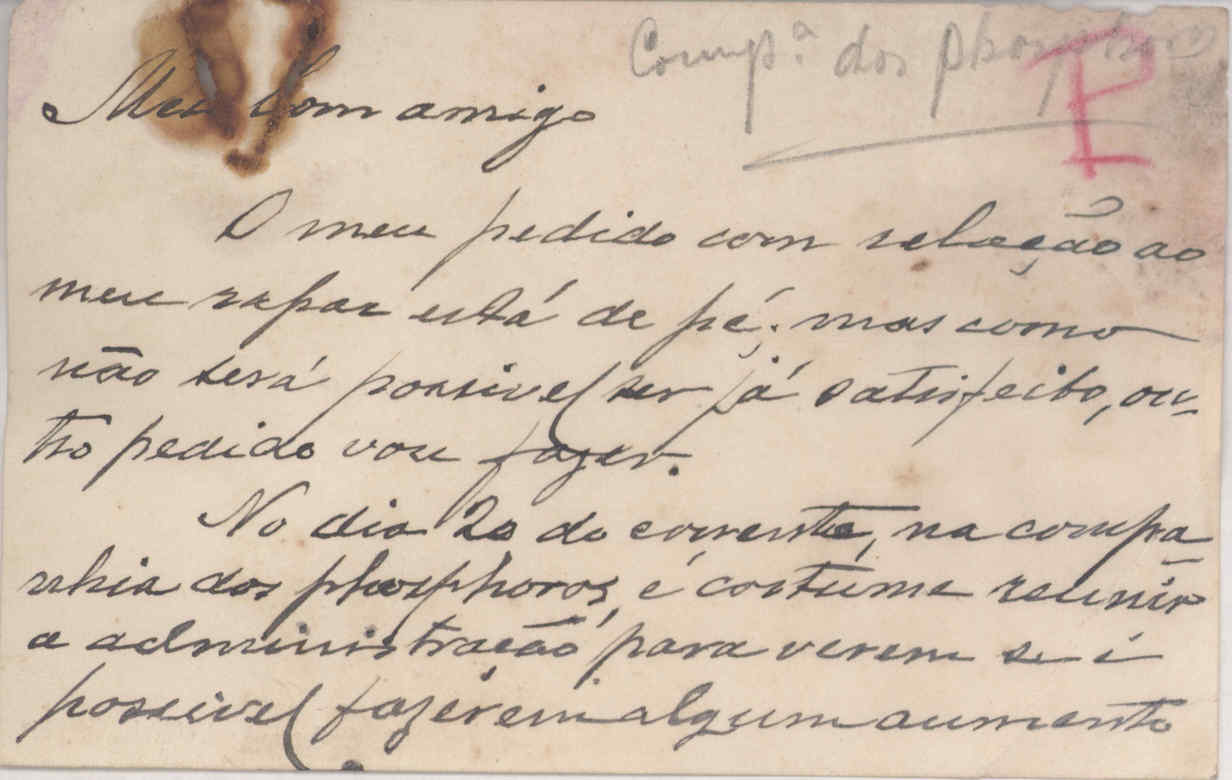 Comp.ª dos phosphoros
P
Meu bom amigo
O meu pedido com relação ao
meu rapaz está de pé; mas como
não será possivel ser já satisfeito, ou-
tro pedido vou fazer.
No dia 20 do corrente, na compa-
nhia dos phosphoros, é costume reunir
a administração para verem se é
possivel fazerem algum aumento